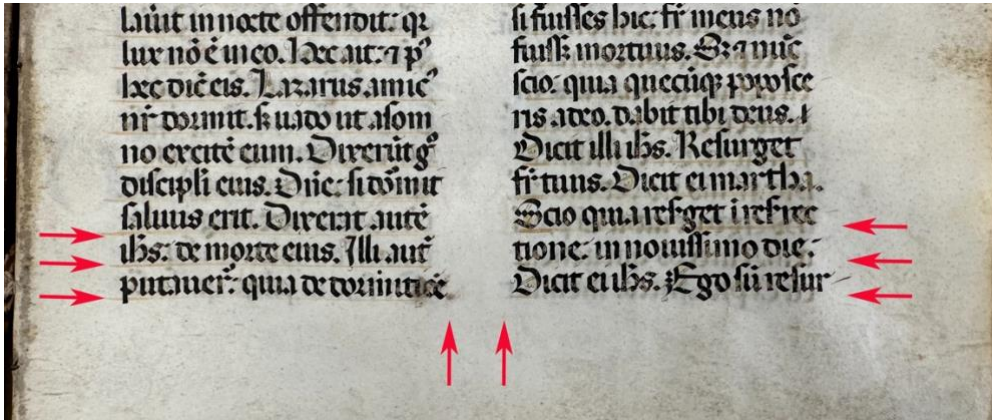 lauit in nocte offendit: qr
lux nō ē in eo. Hec ait: ⁊ pꝰ
hec dic̄ eis. Lazarus amicꝰ
nr̄ dormit. sꝫ uado ut a som
no excitē eum. Dixerūt gͦ
discipli eius. Dn̄e: si dormit
saluus erit. Dixerat autē
ih̄s: de morte eius. Illi aut̄
putauer̄: quia de dormitiōe
si fuisses hic: fr̄ meus nō
fuiss; mortuus. Sꝫ ⁊ nūc
scio: quia quecūqꝫ poposce
ris a deo. dabit tibi deus.
Dicit illi ih̄s. Resurget
fr̄ tuus. Dicit ei martha.
Scio quia res̄get i resrec
tione: in nouissimo die:
Dicit ei ih̄s. Ego sū resur